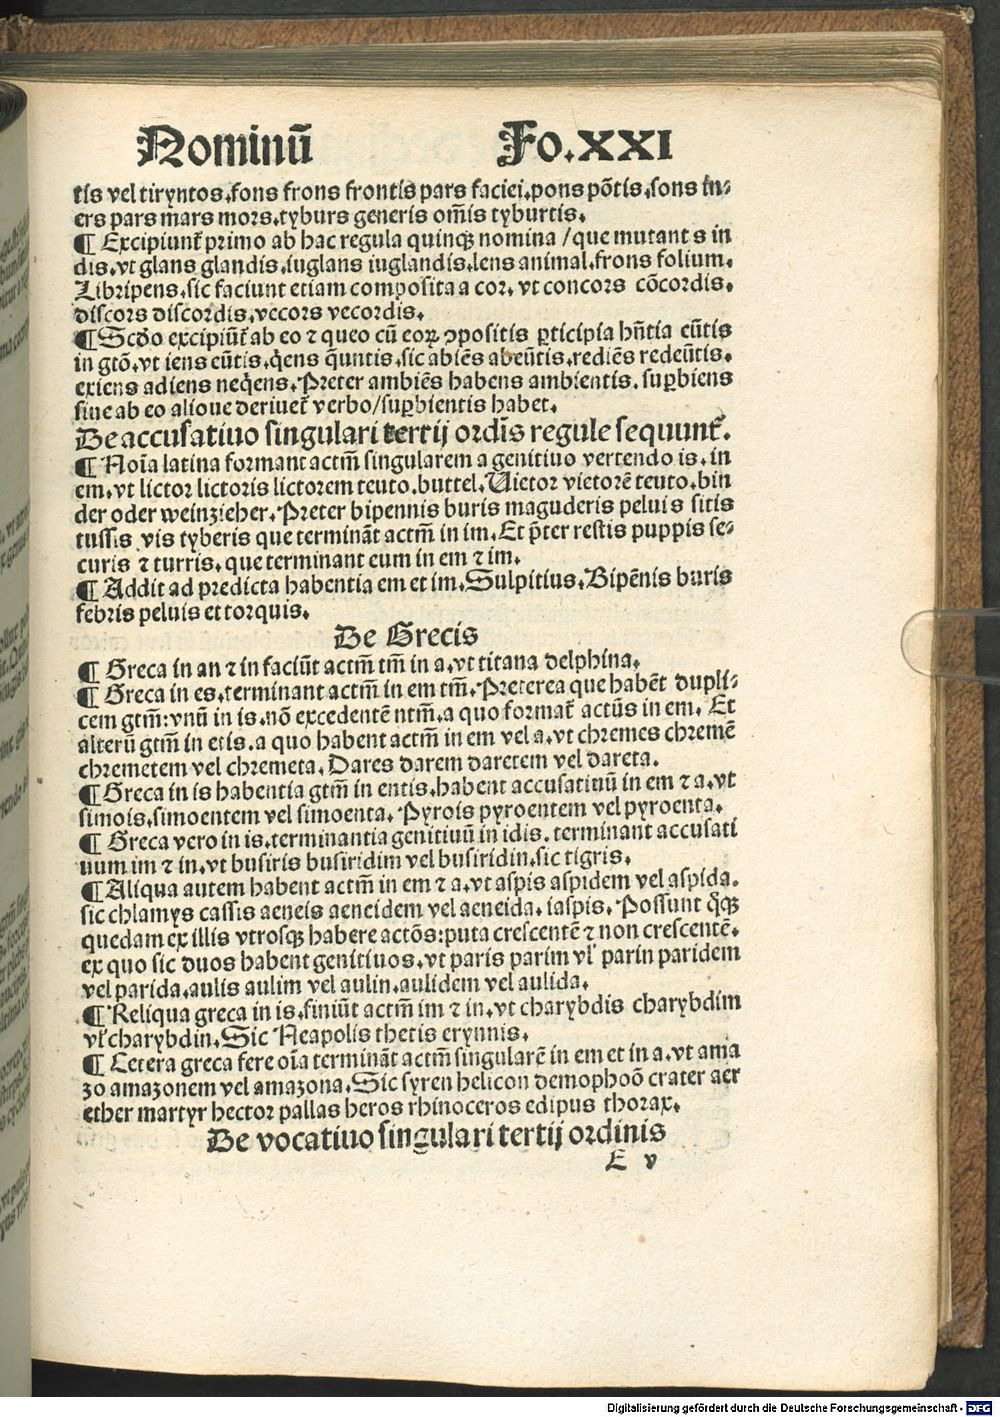 Nominū Fo.XXI
tis vel tiryntos.fons frons frontis pars faciei.pons pōtis.sons in⸗
ers pars mars mors.tyburs generis om̄is tyburtis.
¶ Excipiunt᷑ primo ab hac regula quinqꝫ nomina /que mutant s in
dis.vt glans glandis.iuglans iuglandis.lens animal.frons folium.
Libripens.sic faciunt etiam composita a cor. vt concors cōcordis.
discors discordis.vecors vecordis.
¶Scd̄o excipiūt᷑ ab eo ⁊ queo cū eoꝝ ꝯpositis ꝑticipia hn̄tia eūtis
in gtō.vt iens eūtis.q̄ens q̄untis.sic abiēs abeūtis.rediēs redeūtis.
exiens adiens neq̄ens.Preter ambiēs habens ambientis.suꝑbiens
siue ab eo alioue deriuet᷑ verbo/suꝑbientis habet.
De accusatiuo singulari tertij ordīs regule sequunt᷑.
¶ Noīa latina formant actm̄ singularem a genitiuo vertendo is.in
em.vt lictor lictoris lictorem teuto.buttel.Vietor vietorē teuto.bin
der oder weinzieher.Preter bipennis buris maguderis peluis sitis
tussis vis tyberis que termināt actm̄ in im.Et p̄ter restis puppis se⸗
curis ⁊ turris.que terminant eum in em ⁊ im.
¶ Addit ad predicta habentia em et im.Sulpitius.Bipēnis buris
febris peluis et torquis.
De Grecis
¶ Greca in an ⁊ in faciūt actm̄ tm̄ in a.vt titana delphina.
¶ Greca in es.terminant actm̄ in em tm̄.Preterea que habēt dupli⸗
cem gtm̄:vnū in is.nō excedentē ntm̄.a quo format᷑ actūs in em. Et
alterū gtm̄ in etis.a quo habent actm̄ in em vel a.vt chremes chremē
chremetem vel chremeta.Dares darem daretem vel dareta.
¶ Greca in is habentia gtm̄ in entis.habent accusatiuū in em ⁊ a.vt
simois.simoentem vel simoenta.Pyrois pyroentem vel pyroenta.
¶ Greca vero in is.terminantia genitiuū in idis.terminant accusati
uum im ⁊ in.vt busiris busiridim vel busiridin.sic tigris.
¶Aliqua autem habent actm̄ in em ⁊ a.vt aspis aspidem vel aspida.
sic chlamys cassis aeneis aeneidem vel aeneida.iaspis.Possunt q̄qꝫ
quedam ex illis vtrosqꝫ habere actōs:puta crescentē ⁊ non crescentē.
ex quo sic duos habent genitiuos.vt paris parim vl᷑ parin paridem
vel parida.aulis aulim vel aulin.aulidem vel aulida.
¶ Reliqua greca in is.finiūt actm̄ im ⁊ in.vt charybdis charybdim
vl᷑ charybdin.Sic Neapolis thetis erynnis.
¶ Cetera greca fere oīa termināt actm̄ singularē in em et in a.vt ama
zo amazonem vel amazona.Sic syren helicon demophoō crater aer
ether martyr hector pallas heros rhinoceros edipus thorax.
De vocatiuo singulari tertij ordinis
E v
Digitalisierung gefördert durch die Deutsche Forschungsgemeinschaft - DFG